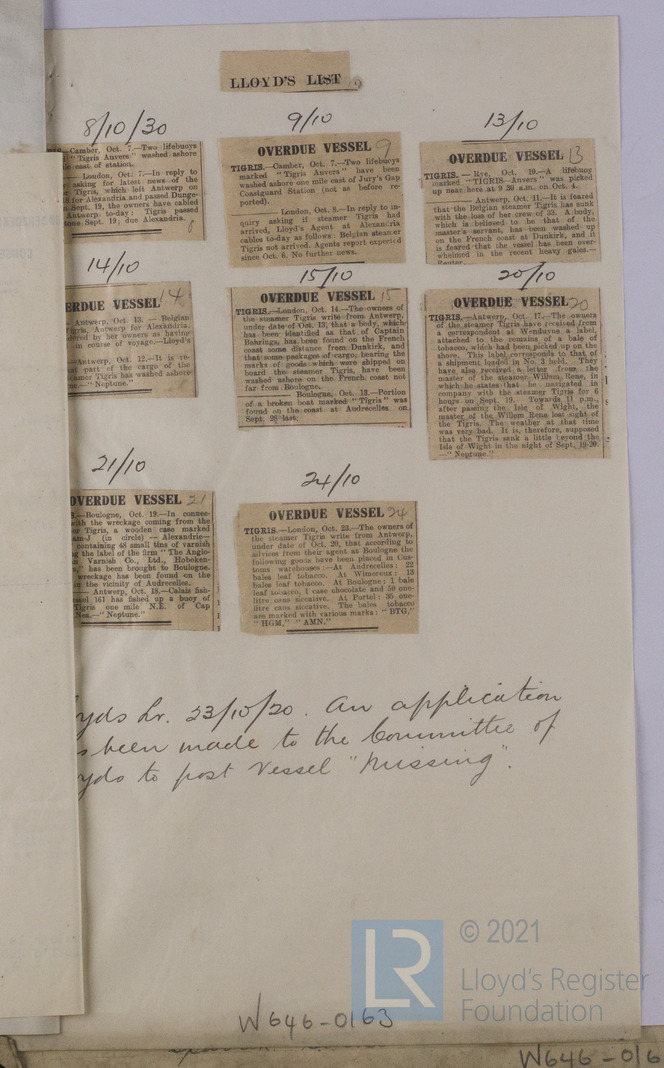 LLOYD'S LIST
8/10/30
Camber, Oct. 7.—Two lifebuoys
"Tigris Anvers" washed ashore
east of station.
London, Oct. 7.—In reply to
asking for latest news of the
Tigris, which left Antwerp on
for Alexandria and passed Dunge-
Sept. 19, the owners have cabled
Antwerp to-day: Tigris passed
Sept. 19; due Alexandria.
8
9/10
OVERDUE VESSEL 9
TIGRIS.—Camber, Oct. 7.—Two lifebuoys
marked "Tigris Anvers" have been
washed ashore one mile east of Jury's Gap
Coastguard Station (not as before re-
ported).
London, Oct. 8.—In reply to in-
quiry asking if steamer Tigris had
arrived, Lloyd's Agent at Alexandria
cables to-day as follows: Belgian steamer
Tigris not arrived. Agents report expected
since Oct. 6. No further news.
13/10
OVERDUE VESSEL 13
TIGRIS.—Rye, Oct. 10.—A lifebuoy
marked "TIGRIS—Anvers" was picked
up near here at 9 30 a.m. on Oct. 4.
Antwerp, Oct. 11.—It is feared
that the Belgian steamer Tigris has sunk
with the loss of her crew of 33. A body,
which is believed to be that of the
master's servant, has been washed up
on the French coast at Dunkirk, and it
is feared that the vessel has been over-
whelmed in the recent heavy gales.—
Reuter.
14/10
ERDUE VESSEL 14
Antwerp, Oct. 13.—Belgian
Tigris, Antwerp for Alexandria,
by her owners as having
in course of voyage.—Lloyd's
Antwerp, Oct. 12.—It is re-
part of the cargo of the
Tigris has been washed ashore
—"Neptune."
15/10
OVERDUE VESSEL 15
TIGRIS.—London, Oct. 14.—The owners of
the steamer Tigris write from Antwerp,
under date of Oct. 13, that a body, which
has been identified as that of Captain
Behrings, has been found on the French
coast some distance from Dunkirk, and
that some packages of cargo, bearing the
marks of goods which were shipped on
board the steamer Tigris, have been
washed ashore on the French coast not
far from Boulogne.
Boulogne, Oct. 13.—Portion
of a broken boat marked "Tigris" was
found on the coast at Audrecelles on
Sept. 28 last.
20/10
OVERDUE VESSEL 20
TIGRIS.—Antwerp, Oct. 17.—The owners
of the steamer Tigris have received from
a correspondent at Wenduyne a label,
attached to the remains of a bale of
tobacco, which had been picked up on the
shore. This label corresponds to that of
a shipment loaded in No. 3 hold. They
have also received a letter from the
master of the steamer Willem Rene, in
which he states that he navigated in
company with the steamer Tigris for 6
hours on Sept. 19. Towards 11 p.m.,
after passing the Isle of Wight, the
master of the Willem Rene lost sight of
the Tigris. The weather at that time
was very bad. It is, therefore, supposed
that the Tigris sank a little beyond the
Isle of Wight in the night of Sept. 19-20.
—"Neptune."
21/10
OVERDUE VESSEL 21
Boulogne, Oct. 19.—In connec-
with the wreckage coming from the
Tigris, a wooden case marked
J (in circle) — Alexandrie—
containing 48 small tins of varnish
the label of the firm "The Anglo-
Varnish Co., Ltd., Hoboken-
has been brought to Boulogne.
wreckage has been found on the
in the vicinity of Audrecelles.
Antwerp, Oct. 18.—Calais fish-
161 has fished up a buoy of
Tigris one mile N.E. of Cap
Nez.—"Neptune."
24/10
OVERDUE VESSEL 24
TIGRIS.—London, Oct. 23.—The owners of
the steamer Tigris write from Antwerp,
under date of Oct. 20, that according to
advices from their agent at Boulogne the
following goods have been placed in Cus-
toms warehouses:—At Audrecelles: 22
bales leaf tobacco. At Wimereux: 13
bales leaf tobacco. At Boulogne: 1 bale
leaf tobacco, 1 case chocolate and 50 one-
litre cans siccative. At Portel: 35 one-
litre cans siccative. The bales tobacco
are marked with various marks: "BTG,"
"HGM," "AMN."
yds Lr. 23/10/20. An application
s been made to the Committee of
yds to post Vessel "Missing".
© 2021
LR
Lloyd's Register
Foundation
W646-0163
W646-016